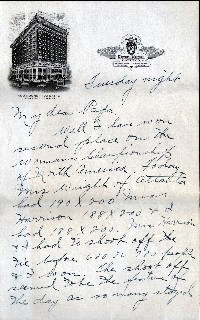 Tuesday night
My dear Papa
Well I have won
second place on the
Woman's Championship
of North America today
Mrs Wright of Atlanta
had 190 x 200 Miss
Harrison 188 x 200 & I
had 188 x 200. Miss Harrison
& I had to shoot off the
tie before 600 or 700 people
& I won. The shoot off
seemed to be the feature of
the day as so many stayed